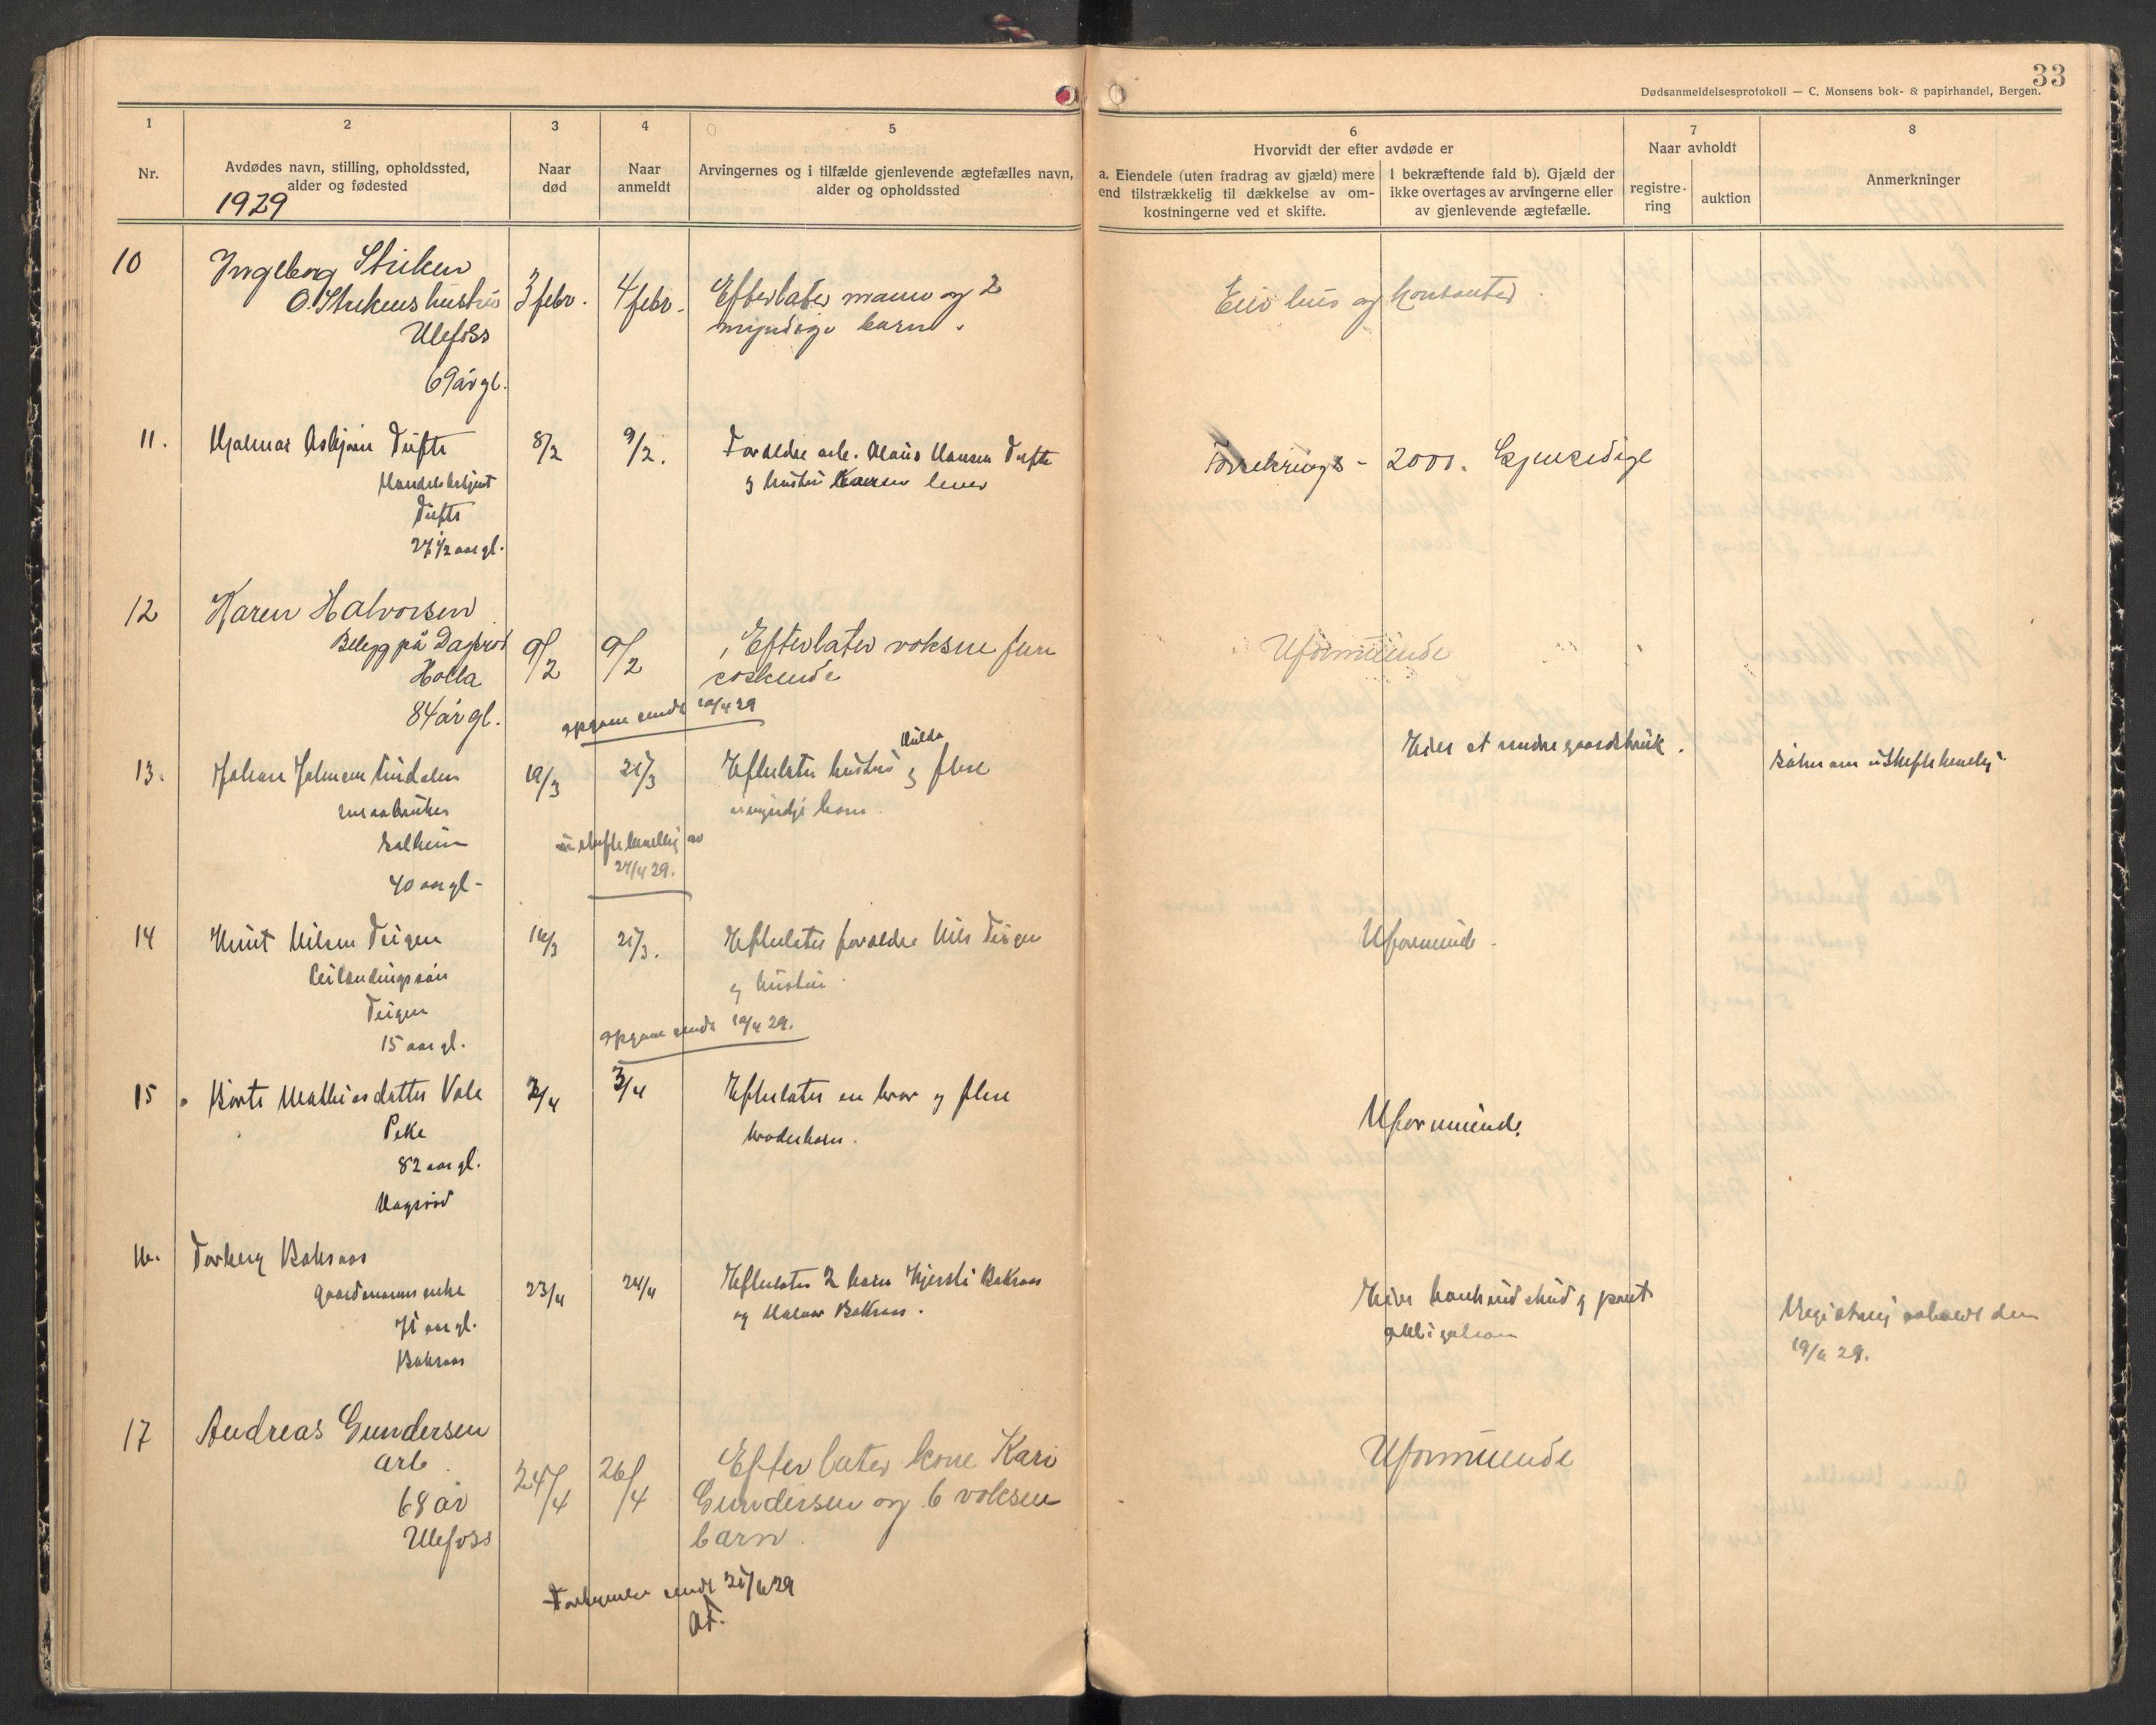 33
Dødsanmeldelsesprotokoll — C. Monsens bok- & papirhandel, Bergen.
1
2
3
4
5
6
7
8
Nr.
Avdødes navn, stilling, opholdssted,
alder og fødested
Naar
død
Naar
anmeldt
Arvingernes og i tilfælde gjenlevende ægtefælles navn,
alder og opholdssted
Hvorvidt der efter avdøde er
a. Eiendele (uten fradrag av gjæld) mere
end tilstrækkelig til dækkelse av om-
kostningerne ved et skifte.
I bekræftende fald b). Gjæld der
ikke overtages av arvingerne eller
av gjenlevende ægtefælle.
Naar avholdt
registre-
ring
auktion
Anmerkninger
1929
10
Ingeborg Striken
O. Strikens hustru
Ulefoss
69 år gl.
3 febr.
4 febr.
Efterlater mann og 2
myndige barn.
Eier hus og kontanter
11.
Hjalmar Asbjørn Tufte
Handelsbetjent
Tufte
27 1/2 aar gl.
8/2
9/2.
Foreldre arb. Hansen Tufte
g hustru Karen lever
Forsikrings - 2000.
12
Karen Halvorsen
Belegg på Dagsrød
Holla
84 år gl.
9/2
9/2
Efterlater voksne flere
søskende
Uformuende
opgave sendt 10/4 29
13.
Johan Johnsen Lindalen
smaabruker
40 aar gl-
19/3
21/3
Efterlater hustru Hulda g flere
umyndige barn.
Eier et mindre gaardsbruk.
uskiftebevillig av
24/4 29.
14
Knut Nilsen Teigen
Teigen
15 aar gl.
16/3
21/3.
Efterlater foreldre Nils Teigen
g hustru
Uformuende
opgave sendt 10/4 29.
15
Mathiasdatter Vale
Pike
82 aar gl.
Hagsrød
2/4
3/4
Efterlater en bror g flere
broderbarn.
Uformuende
16.
Torberg Baksaas
gaardmanns enke
71 aar gl.
Baksaas
23/4
24/4
Efterlater 2 barn Kjersti Baksaas
og Halvor Baksaas.
Eier bankindskud g pant
obligation
Registrering avholdt den
19/6 29.
17
Andreas Gundersen
arb.
68 år
Ulefoss
24/4
26/4
Efterlater kone Kari
Gundersen og 6 voksne
barn.
Uformuende
sendt